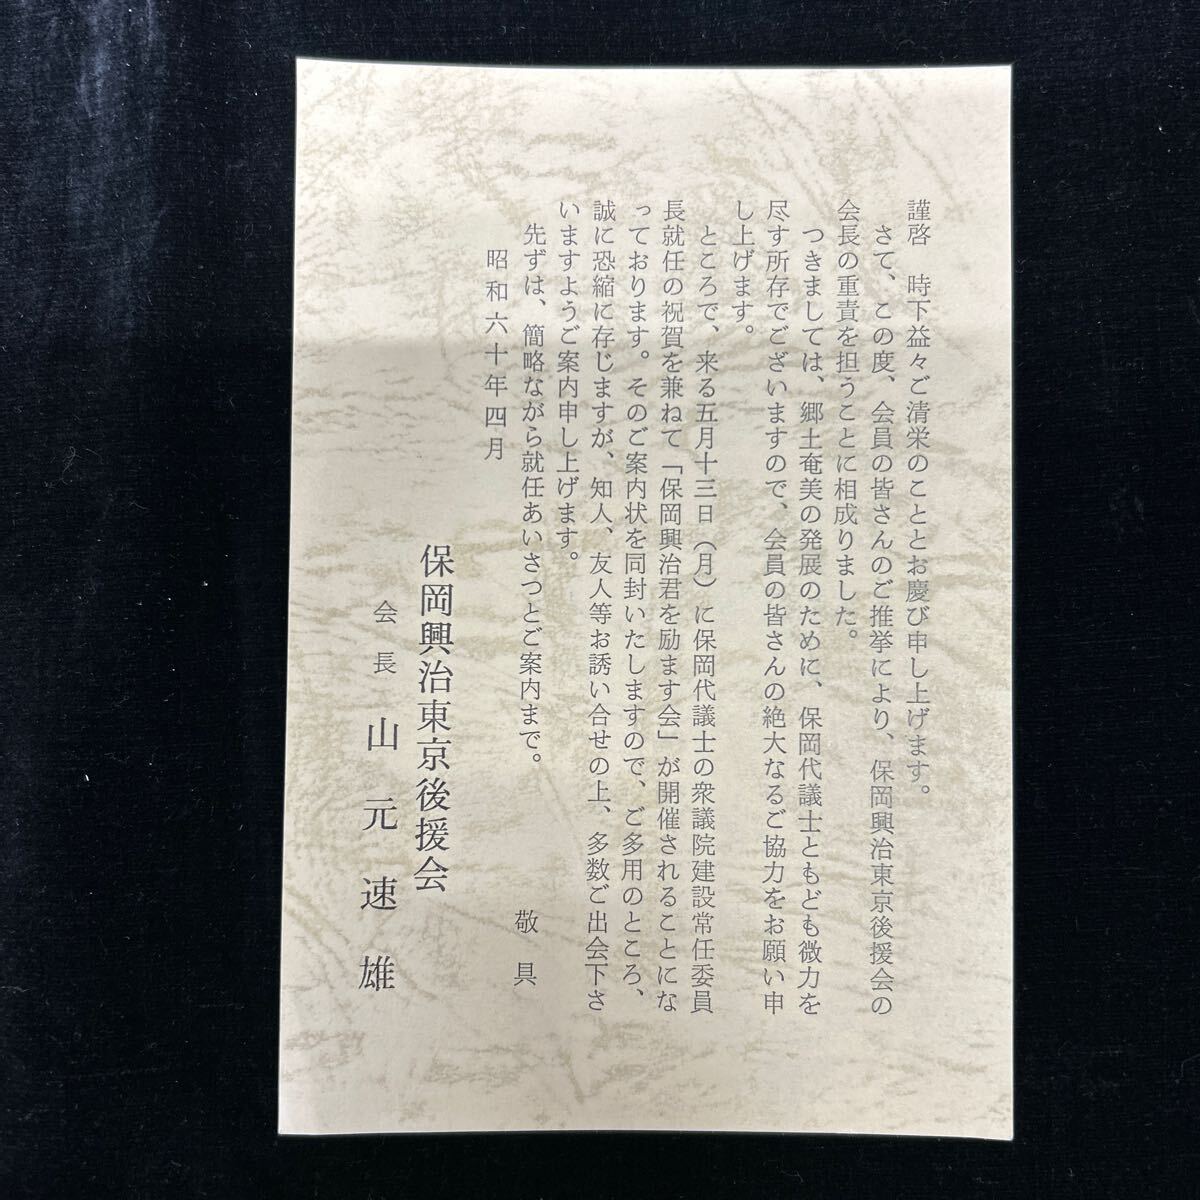 謹啓　時下益々ご清栄のこととお慶び申し上げます。
さて、この度、会員の皆さんのご推挙により、保岡興治東京後援会の
会長の重責を担うことに相成りました。
つきましては、郷土奄美の発展のために、保岡代議士ともども微力を
尽す所存でございますので、会員の皆さんの絶大なるご協力をお願い申
し上げます。
ところで、来る五月十三日（月）に保岡代議士の衆議院建設常任委員
長就任の祝賀を兼ねて「保岡興治君を励ます会」が開催されることにな
っております。そのご案内状を同封いたしますので、ご多用のところ、
誠に恐縮に存じますが、知人、友人等お誘い合せの上、多数ご出会下さ
いますようご案内申し上げます。
先ずは、簡略ながら就任あいさつとご案内まで。
敬具
昭和六十年四月
保岡興治東京後援会
会長　山元速雄